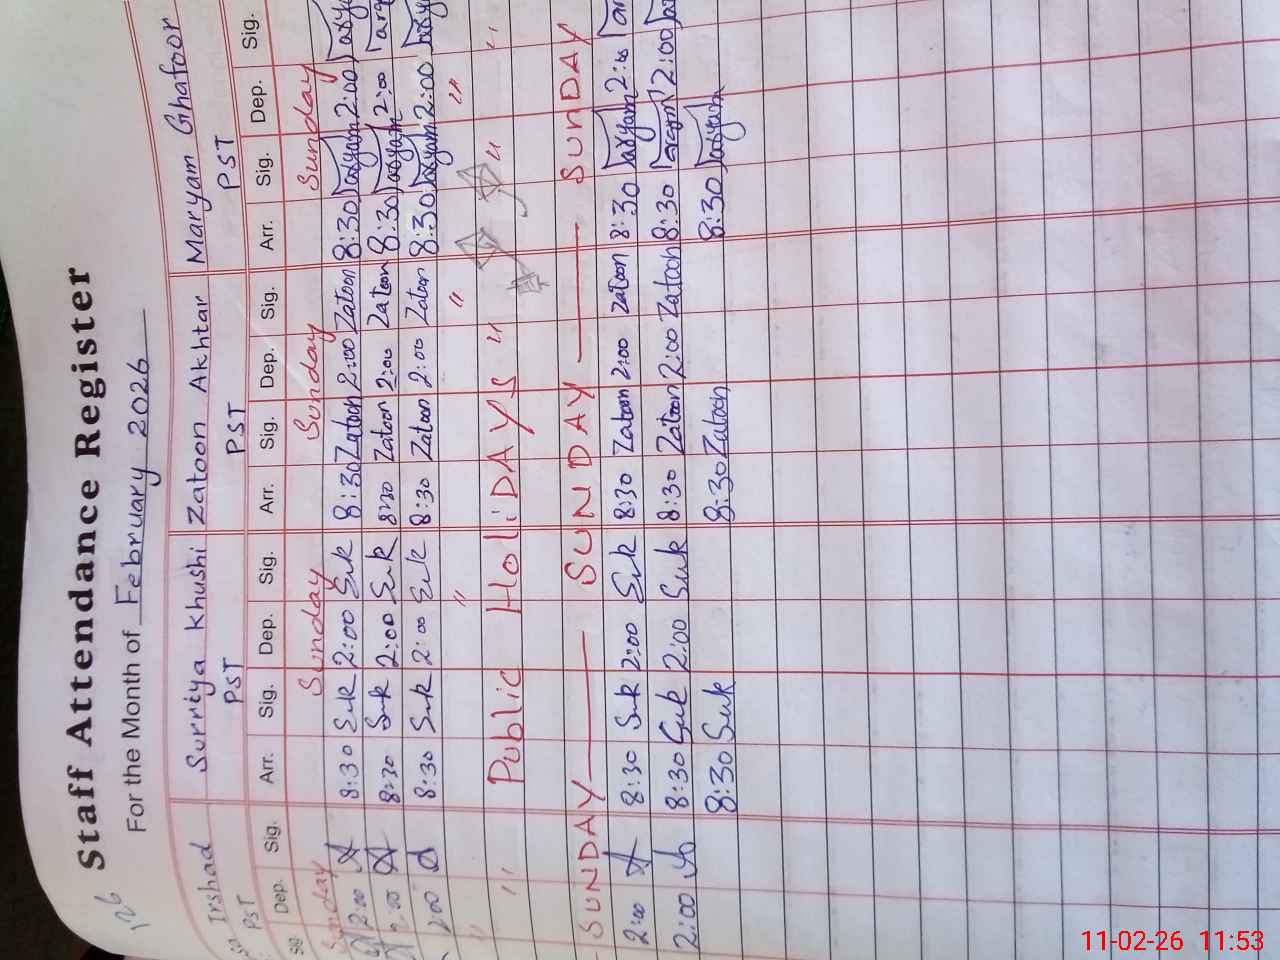 Staff Attendance Register
For the Month of February 2026
Irshad Surriya Khushi Zatoon Akhtar Maryam Ghafoor
PST PST PST PST
Dep. Sig. Arr. Sig. Dep. Sig. Arr. Sig. Dep. Sig. Arr. Sig. Dep. Sig.
Sunday Sunday Sunday Sunday Sunday
2:00 8:30 Suk 2:00 Suk 8:30 Zatoon 2:00 Zatoon 8:30 Maryam 2:00
2:00 8:30 Suk 2:00 Suk 8:30 Zatoon 2:00 Zatoon 8:30 Maryam 2:00
2:00 8:30 Suk 2:00 Suk 8:30 Zatoon 2:00 Zatoon 8:30 Maryam 2:00
" " " "
" Public HoliDAYS " " "
SUNDAY SUNDAY SUNDAY
2:00 8:30 Suk 2:00 Suk 8:30 Zatoon 2:00 Zatoon 8:30 Maryam 2:00
2:00 8:30 Suk 2:00 Suk 8:30 Zatoon 2:00 Zatoon 8:30 Maryam 2:00
8:30 Suk 8:30 Zatoon 8:30 Maryam
11-02-26 11:53